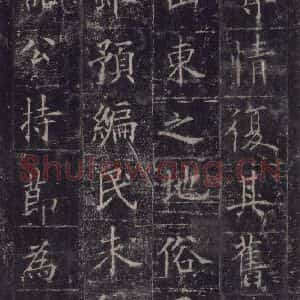 情復其舊
東之地俗
預編民未
公持節為
ShufaWang.CN